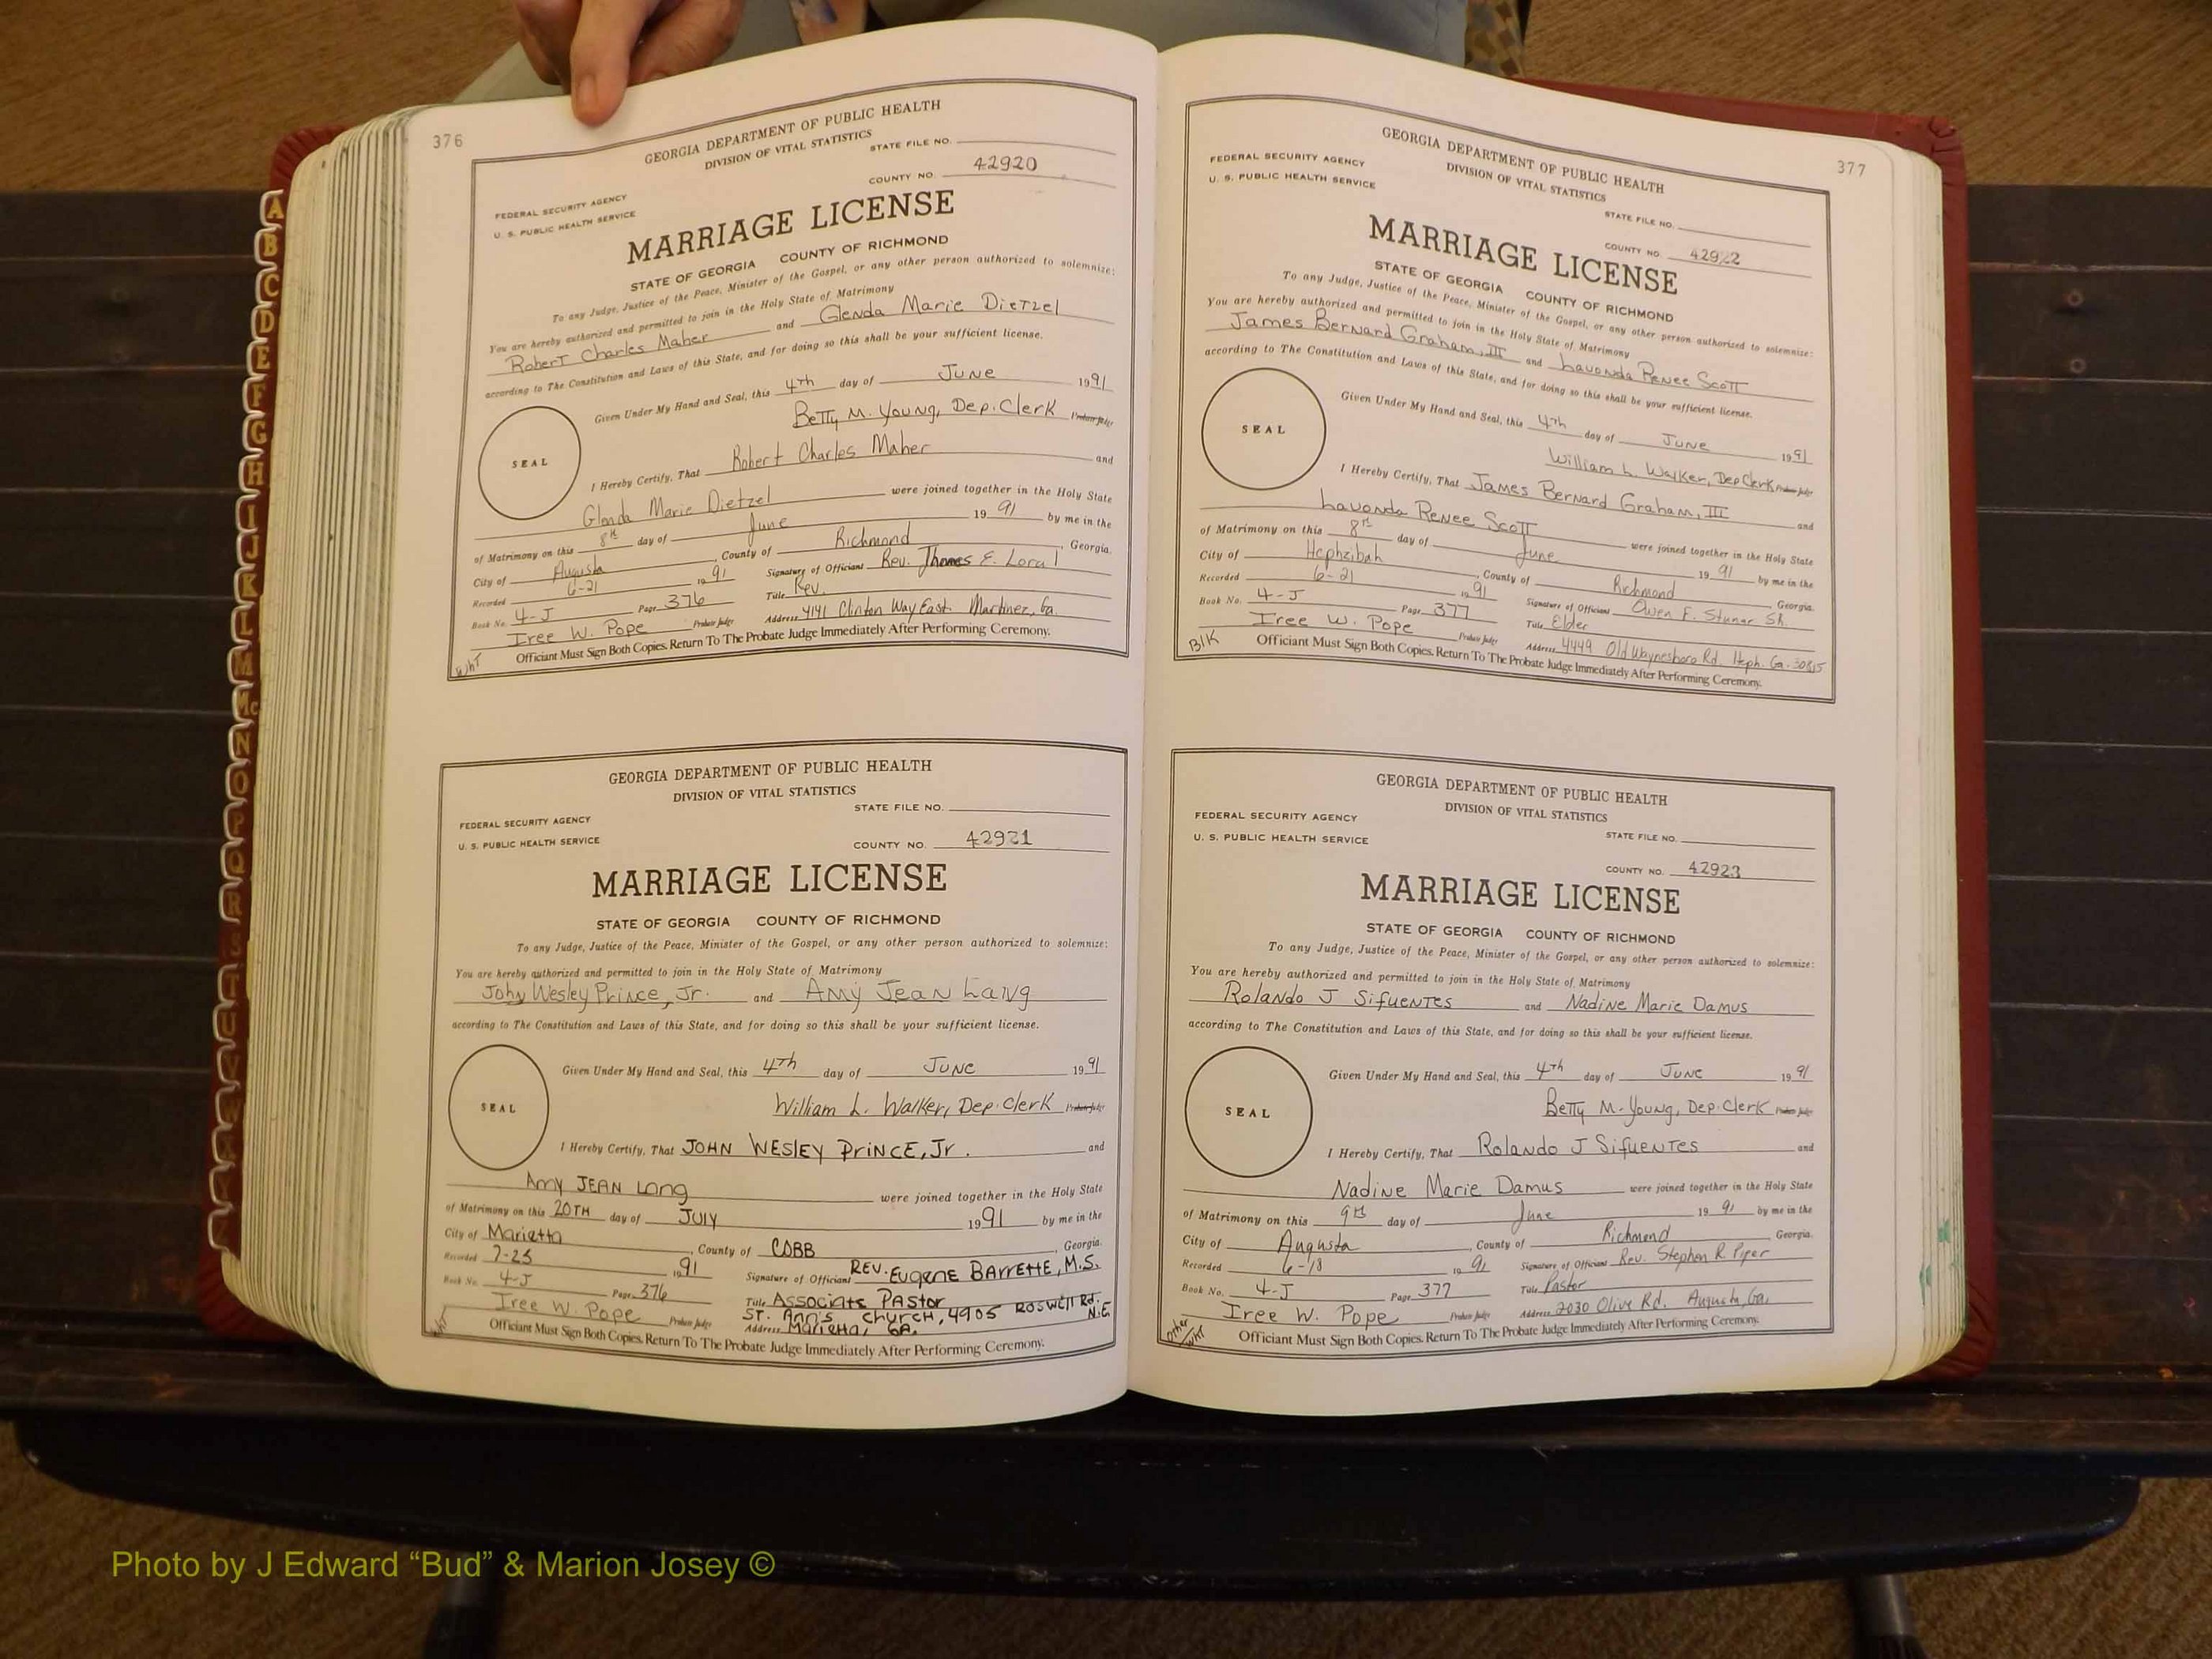 376
GEORGIA DEPARTMENT OF PUBLIC HEALTH
DIVISION OF VITAL STATISTICS
STATE FILE NO.
COUNTY NO. 42920
FEDERAL SECURITY AGENCY
U. S. PUBLIC HEALTH SERVICE
MARRIAGE LICENSE
STATE OF GEORGIA COUNTY OF RICHMOND
To any Judge, Justice of the Peace, Minister of the Gospel, or any other person authorized to solemnize:
You are hereby authorized and permitted to join in the Holy State of Matrimony
Robert Charles Maher and Glenda Marie Dietzel
according to The Constitution and Laws of this State, and for doing so this shall be your sufficient license.
Given Under My Hand and Seal, this 4th day of June 1991
Betty M. Young, Dep. Clerk Probate Judge
SEAL
I Hereby Certify, That Robert Charles Maher and
Glenda Marie Dietzel were joined together in the Holy State
of Matrimony on this 8th day of June 1991 by me in the
City of Augusta, County of Richmond, Georgia.
Recorded 6-21 1991 Signature of Officiant Rev. Thomas E.
Book No. 4-J Page 376 Title Rev.
Iree W. Pope Probate Judge Address 4141 Clinton Way East Martinez, Ga.
Wht Officiant Must Sign Both Copies. Return To The Probate Judge Immediately After Performing Ceremony.
GEORGIA DEPARTMENT OF PUBLIC HEALTH
DIVISION OF VITAL STATISTICS
STATE FILE NO.
FEDERAL SECURITY AGENCY
U. S. PUBLIC HEALTH SERVICE
COUNTY NO. 42921
MARRIAGE LICENSE
STATE OF GEORGIA COUNTY OF RICHMOND
To any Judge, Justice of the Peace, Minister of the Gospel, or any other person authorized to solemnize:
You are hereby authorized and permitted to join in the Holy State of Matrimony
John Wesley Prince, Jr. and Amy Jean Lang
according to The Constitution and Laws of this State, and for doing so this shall be your sufficient license.
Given Under My Hand and Seal, this 4th day of June 1991
William L. Walker, Dep. Clerk Probate Judge
SEAL
I Hereby Certify, That JOHN WESLEY PRINCE, Jr. and
Amy JEAN Lang were joined together in the Holy State
of Matrimony on this 20TH day of JULY 1991 by me in the
City of Marietta, County of COBB, Georgia.
Recorded 7-25 1991 Signature of Officiant REV. EUGENE BARRETTE, M.S.
Book No. 4-J Page 376 Title Associate PASTOR
ST. Ann's CHURCH, 4905 ROSWELL Rd. N.E.
Iree W. Pope Probate Judge Address MARIETTA, GA.
Wht Officiant Must Sign Both Copies. Return To The Probate Judge Immediately After Performing Ceremony.
377
GEORGIA DEPARTMENT OF PUBLIC HEALTH
DIVISION OF VITAL STATISTICS
FEDERAL SECURITY AGENCY
U. S. PUBLIC HEALTH SERVICE
STATE FILE NO.
COUNTY NO. 42922
MARRIAGE LICENSE
STATE OF GEORGIA COUNTY OF RICHMOND
To any Judge, Justice of the Peace, Minister of the Gospel, or any other person authorized to solemnize:
You are hereby authorized and permitted to join in the Holy State of Matrimony
James Bernard Graham, III and Lavonda Renee Scott
according to The Constitution and Laws of this State, and for doing so this shall be your sufficient license.
Given Under My Hand and Seal, this 4th day of June 1991
William L. Walker, Dep Clerk Probate Judge
SEAL
I Hereby Certify, That James Bernard Graham, III and
Lavonda Renee Scott were joined together in the Holy State
of Matrimony on this 8th day of June 1991 by me in the
City of Hephzibah, County of Richmond Georgia.
Recorded 6-21 1991 Signature of Officiant Owen F.
Book No. 4-J Page 377 Title Elder
Iree W. Pope Probate Judge Address 4449 Old Waynesboro Rd. Heph. Ga. 30815
Blk Officiant Must Sign Both Copies. Return To The Probate Judge Immediately After Performing Ceremony.
GEORGIA DEPARTMENT OF PUBLIC HEALTH
DIVISION OF VITAL STATISTICS
FEDERAL SECURITY AGENCY
U. S. PUBLIC HEALTH SERVICE
STATE FILE NO.
COUNTY NO. 42923
MARRIAGE LICENSE
STATE OF GEORGIA COUNTY OF RICHMOND
To any Judge, Justice of the Peace, Minister of the Gospel, or any other person authorized to solemnize:
You are hereby authorized and permitted to join in the Holy State of Matrimony
Rolando J Sifuentes and Nadine Marie Damus
according to The Constitution and Laws of this State, and for doing so this shall be your sufficient license.
Given Under My Hand and Seal, this 4th day of June 1991
Betty M. Young, Dep. Clerk Probate Judge
SEAL
I Hereby Certify, That Rolando J Sifuentes and
Nadine Marie Damus were joined together in the Holy State
of Matrimony on this 9th day of June 1991 by me in the
City of Augusta, County of Richmond Georgia.
Recorded 6-18 1991 Signature of Officiant Rev. Stephen R. Piper
Book No. 4-J Page 377 Title Pastor
Iree W. Pope Probate Judge Address 2030 Olive Rd. Augusta, Ga.
Other/Wht Officiant Must Sign Both Copies. Return To The Probate Judge Immediately After Performing Ceremony.
A
B
C
D
E
F
G
H
I
J
K
L
M
Mc
N
O
P
Q
R
S
T
U
V
W
Photo by J Edward “Bud” & Marion Josey ©